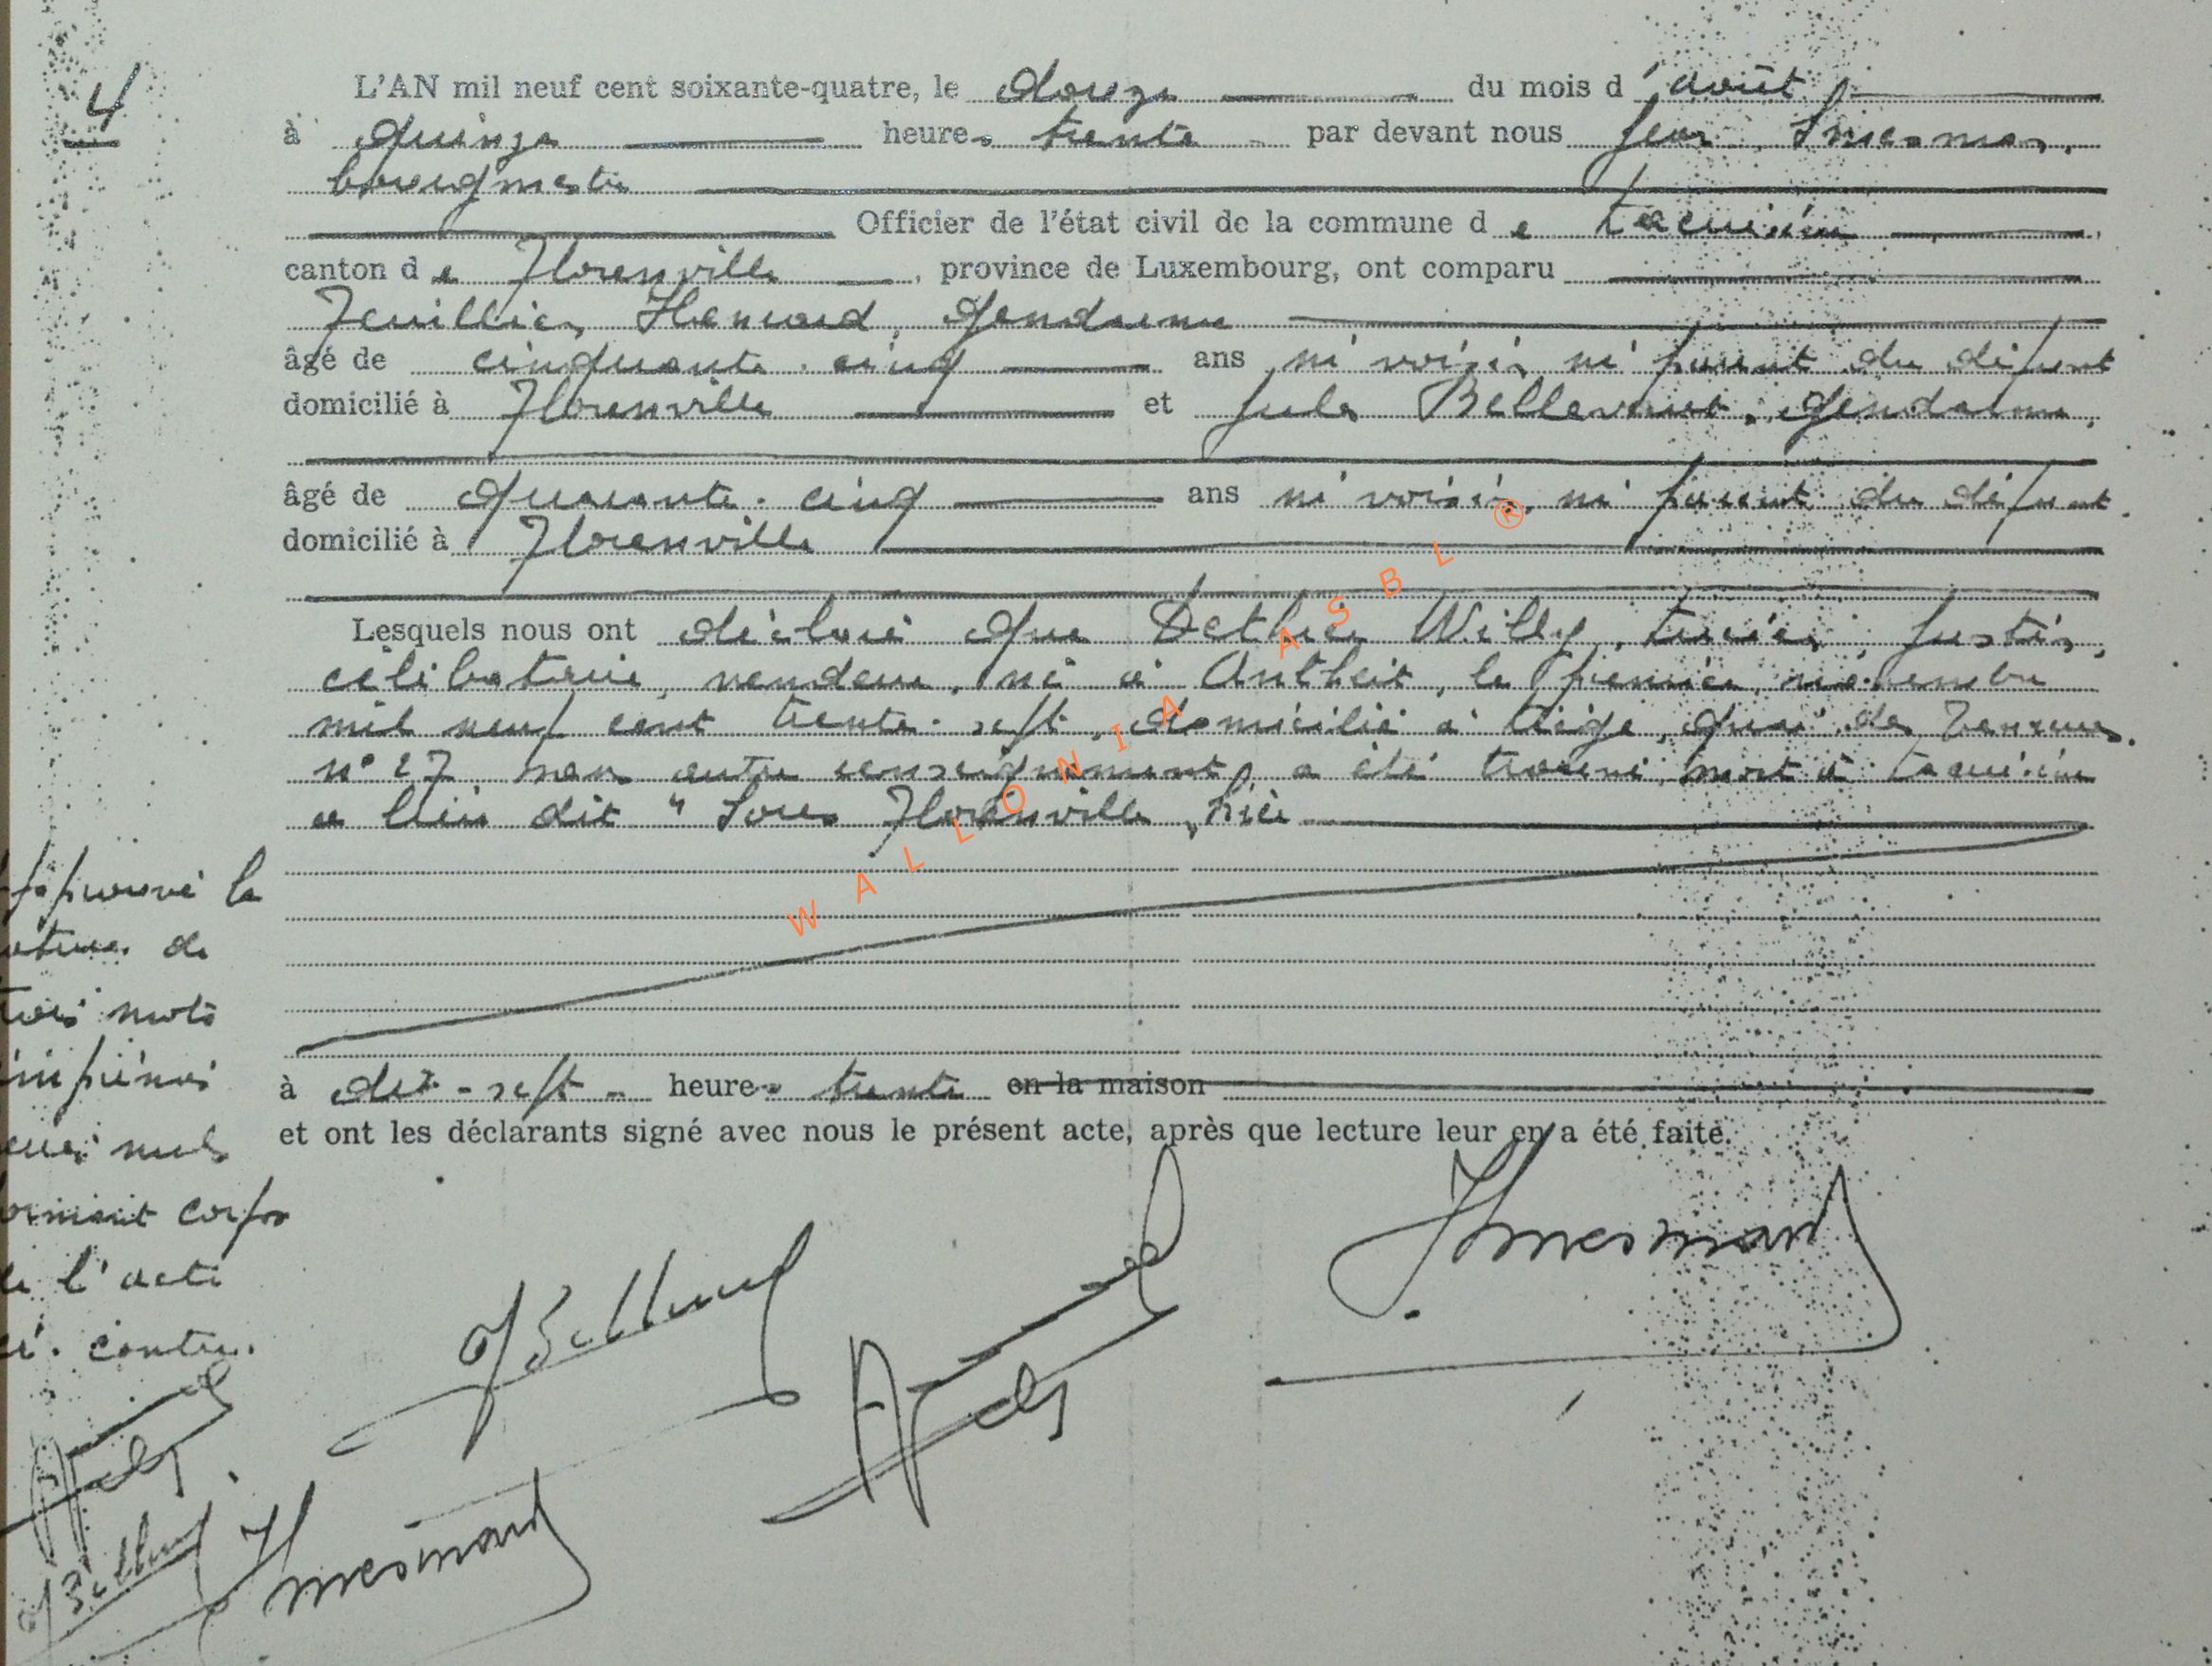 4
L'AN mil neuf cent soixante-quatre, le douze du mois d'août
à quinze heures trente par devant nous Jean
bourgmestre
Officier de l'état civil de la commune de Lacuisine
canton de Florenville, province de Luxembourg, ont comparu
gendarme
âgé de cinquante-cinq ans ni voisin ni parent du défunt
domicilié à Florenville et Jules gendarme,
âgé de quarante-cinq ans ni voisin, ni parent du défunt
domicilié à Florenville
Lesquels nous ont déclaré que Dethier Willy, Justin,
célibataire, vendeur, né à Antheit, le premier novembre
mil neuf cent trente-sept, domicilié à Liège, quai des Tanneurs
n° 27 sans autre renseignement, a été trouvé mort à Lacuisine
au lieu dit "Sous Florenville, hier
à dix-sept heures trente en la maison
et ont les déclarants signé avec nous le présent acte, après que lecture leur en a été faite.
WALLONIA ASBL ®
approuvé la
rature de
trois mots
imprimés
nuls
formant corps
de l'acte
ci-contre.